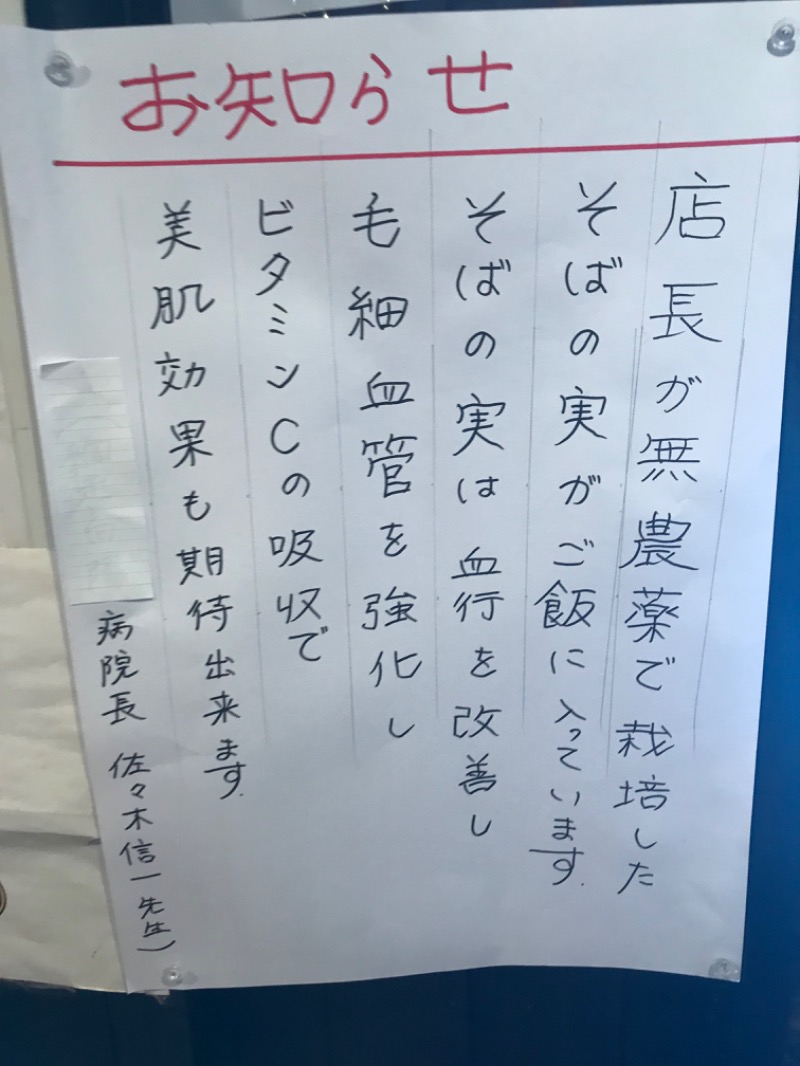 お知らせ
店長が無農薬で栽培した
そばの実がご飯に入っています.
そばの実は血行を改善し
毛細血管を強化し
ビタミンCの吸収で
美肌効果も期待出来ます.
病院長 佐々木信一先生)